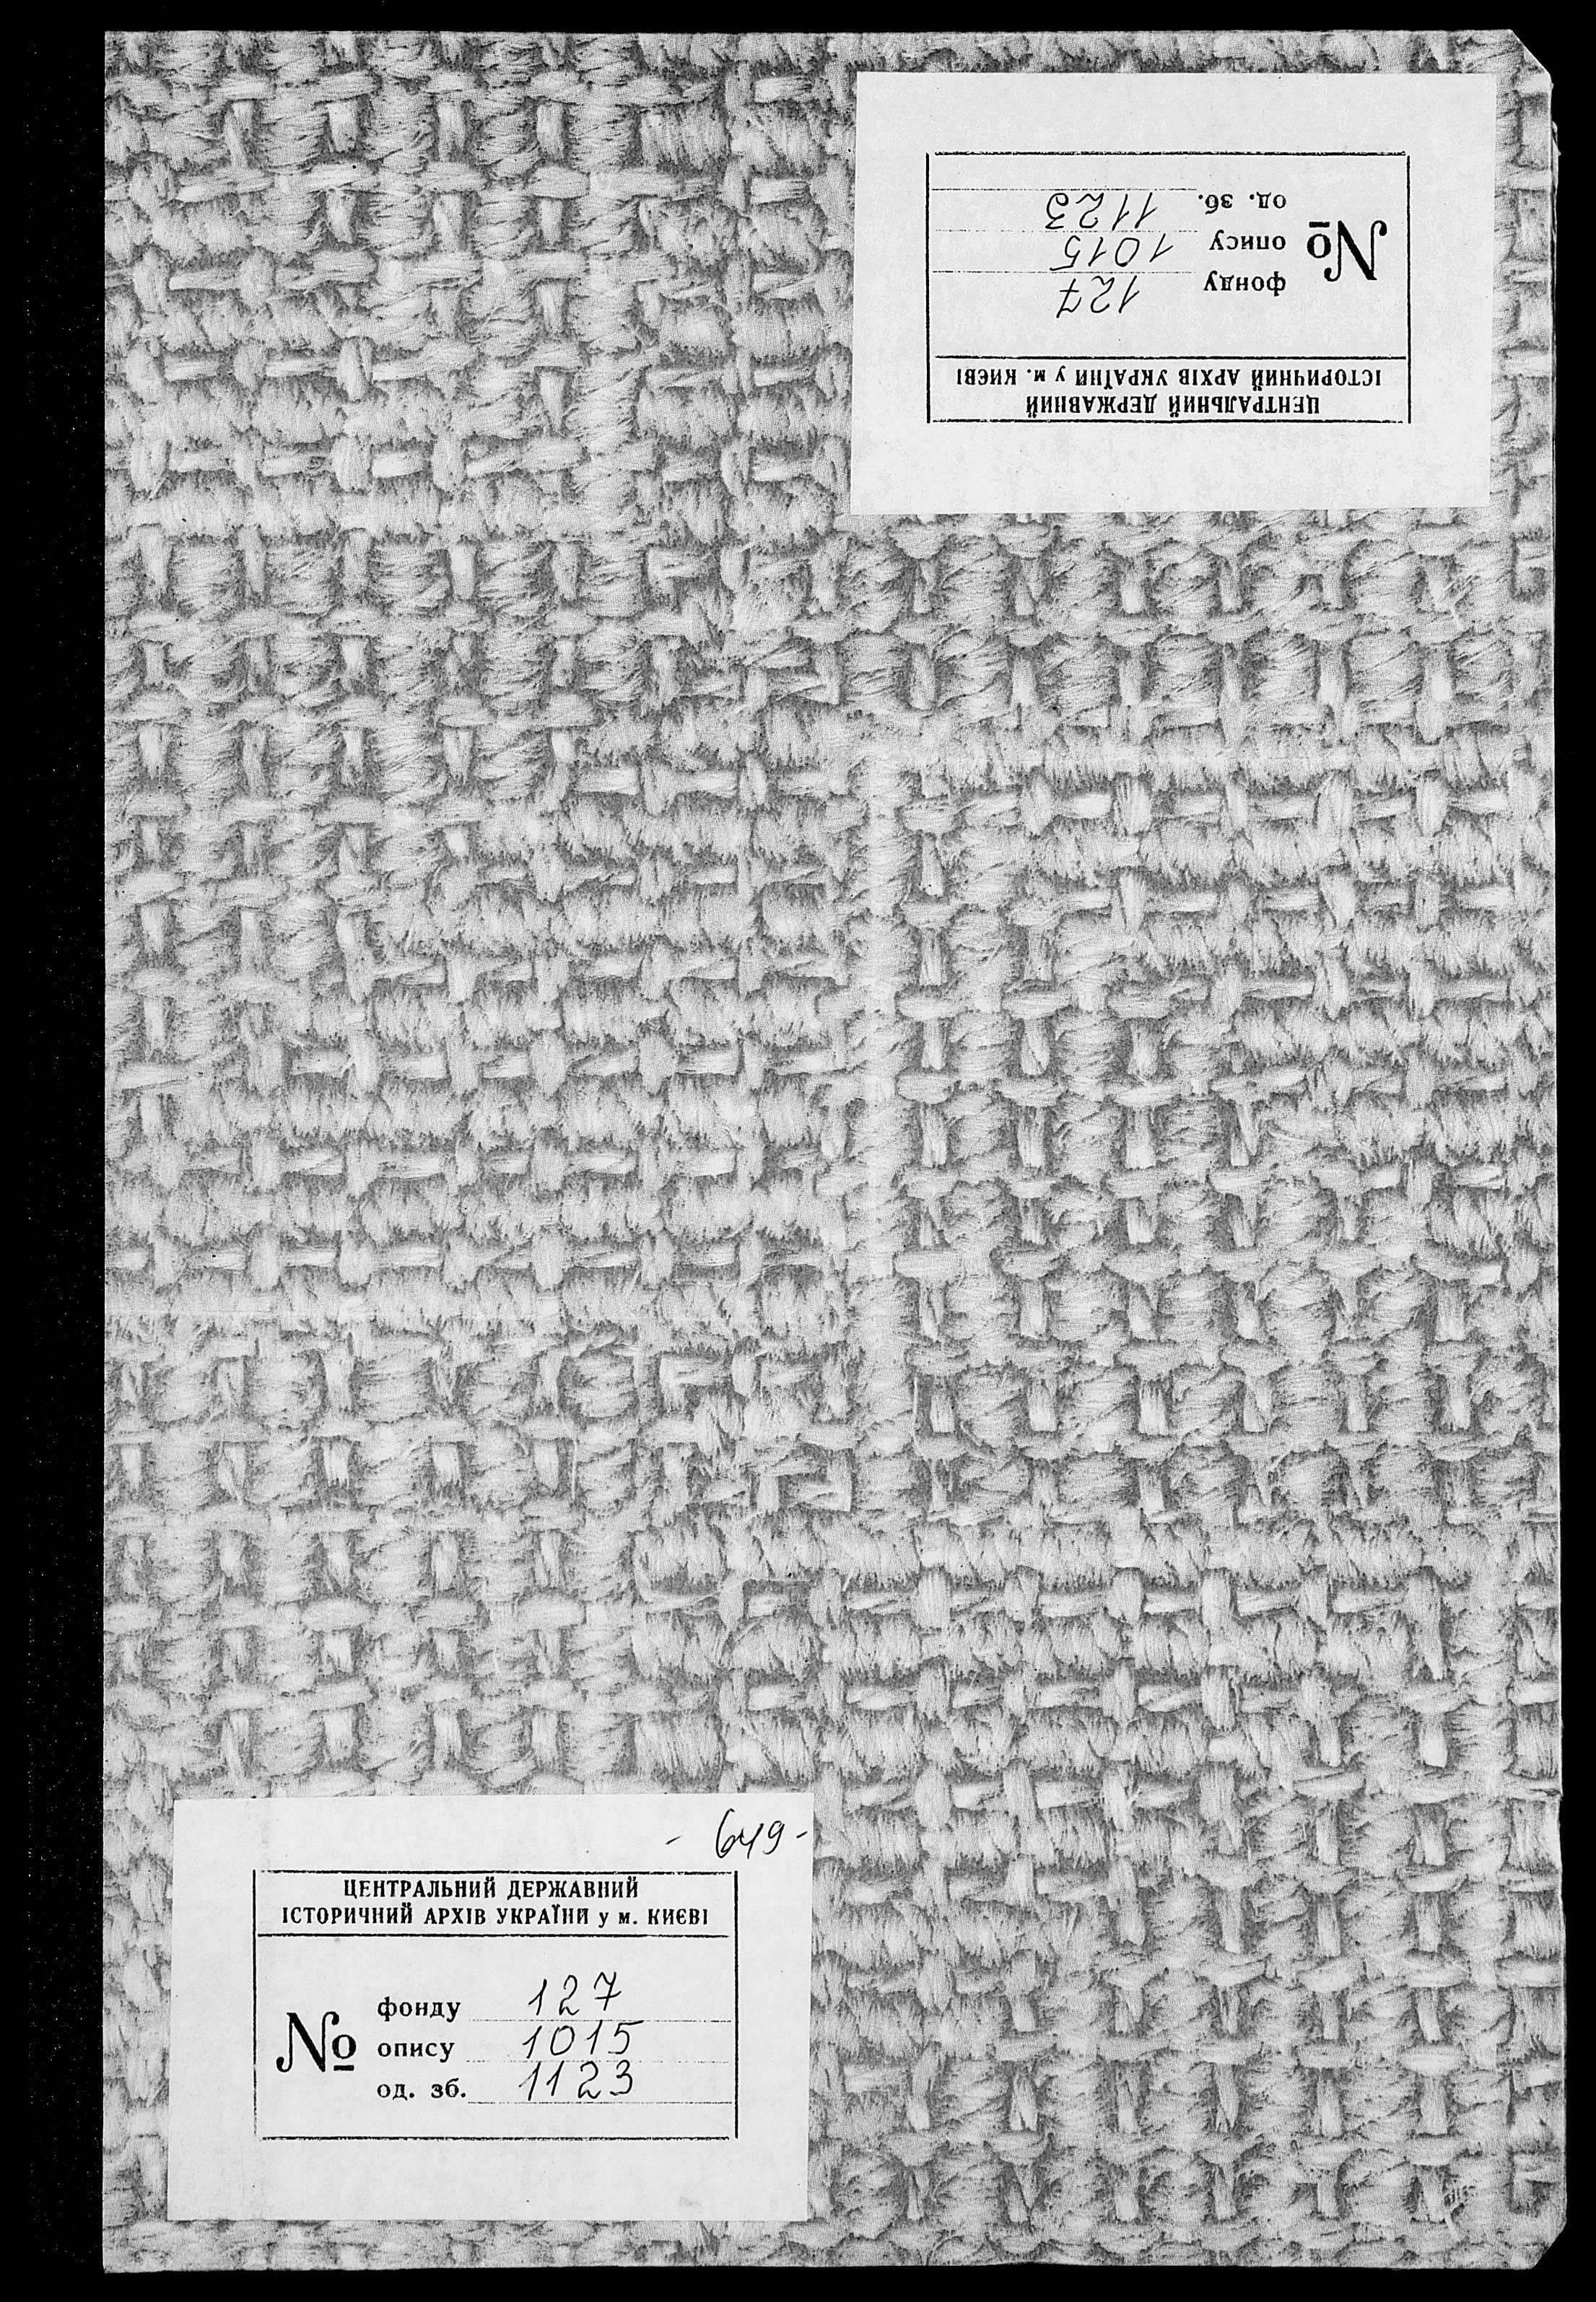 ЦЕНТРАЛЬНИЙ ДЕРЖАВНИЙ
ІСТОРИЧНИЙ АРХІВ УКРАЇНИ у м. КИЄВІ
№
фонду 127
опису 1015
од. зб. 1123
- 649 -
ЦЕНТРАЛЬНИЙ ДЕРЖАВНИЙ
ІСТОРИЧНИЙ АРХІВ УКРАЇНИ у м. КИЄВІ
№
фонду 127
опису 1015
од. зб. 1123